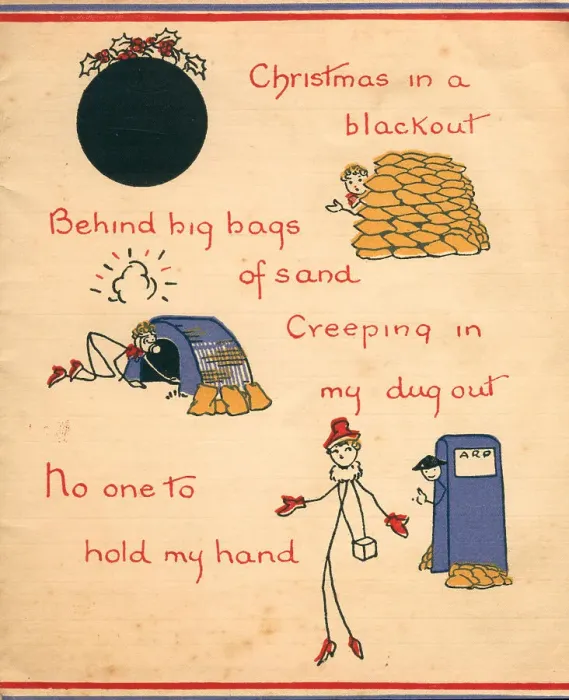 Christmas in a
blackout
Behind big bags
of sand
Creeping in
my dug out
ARP
No one to
hold my hand